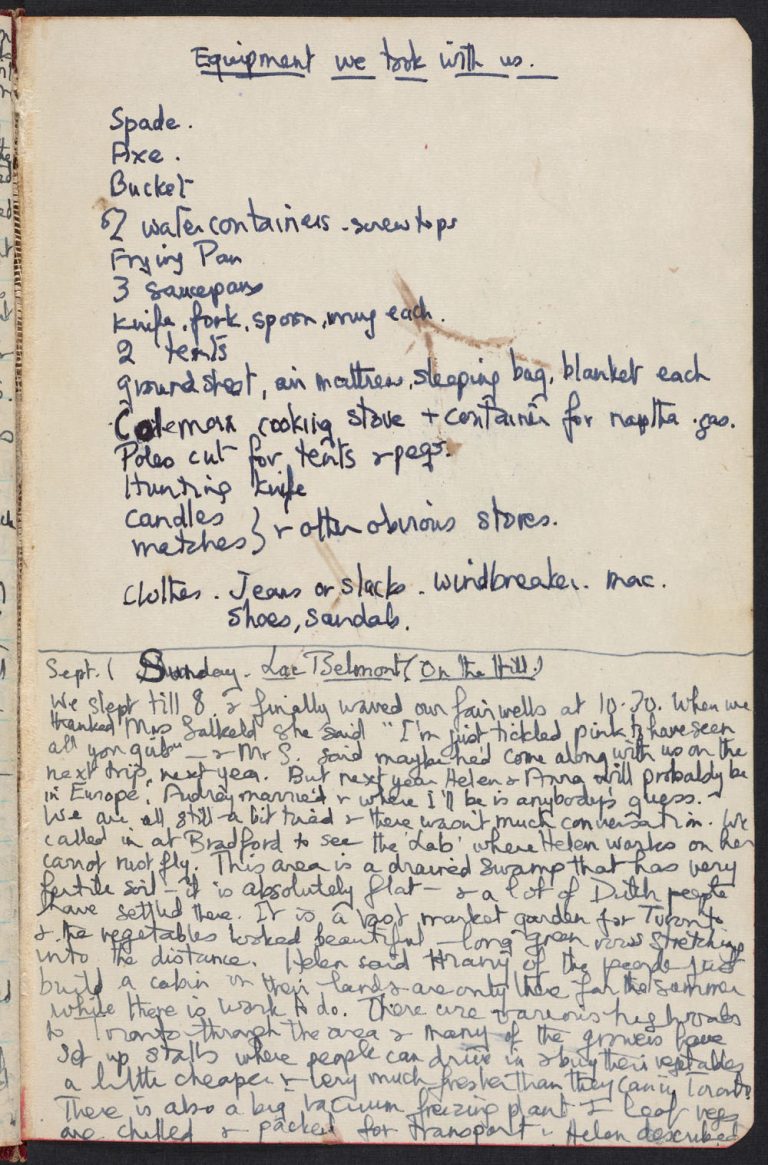 Equipment we took with us.
Spade.
Axe.
Bucket
2 water containers - screw tops
Frying Pan
3 saucepans
knife, fork, spoon, mug each.
2 tents
groundsheet, air mattress, sleeping bag, blanket each
Coleman cooking stove + container for naptha gas.
Poles cut for tents & pegs.
Hunting knife
candles
matches } & other obvious stores.
Clothes. Jeans or slacks. windbreaker. mac.
Shoes, Sandals.
Sept. 1 Sunday. Lac Belmont (On the Hill)
We slept till 8 & finally waved our fairwells at 10.30. When we
thanked Mrs Salkeld she said "I'm just tickled pink to have seen
all you gals" — & Mr S. said maybe he'd come along with us on the
next trip, next year. But next year Helen & Anna will probably be
in Europe, Audrey married & where I'll be is anybody's guess. -
We are all still a bit tired & there wasn't much conversation. We
called in at Bradford to see the 'Lab' where Helen works on her
carrot rust fly. This area is a drained swamp that has very
fertile soil - it is absolutely flat - & a lot of Dutch people
have settled there. It is a vast market garden for Toronto
& the vegetables looked beautiful - long green rows stretching
into the distance. Helen said many of the people just
build a cabin on their land & are only there for the summer
while there is work to do. There are various highroads
to Toronto through the area & many of the growers have
set up stalls where people can drive in & buy their vegetables
a little cheaper & very much fresher than they can in Toronto.
There is also a big vacuum freezing plant & leaf veges
are chilled & packed for transport. Helen described